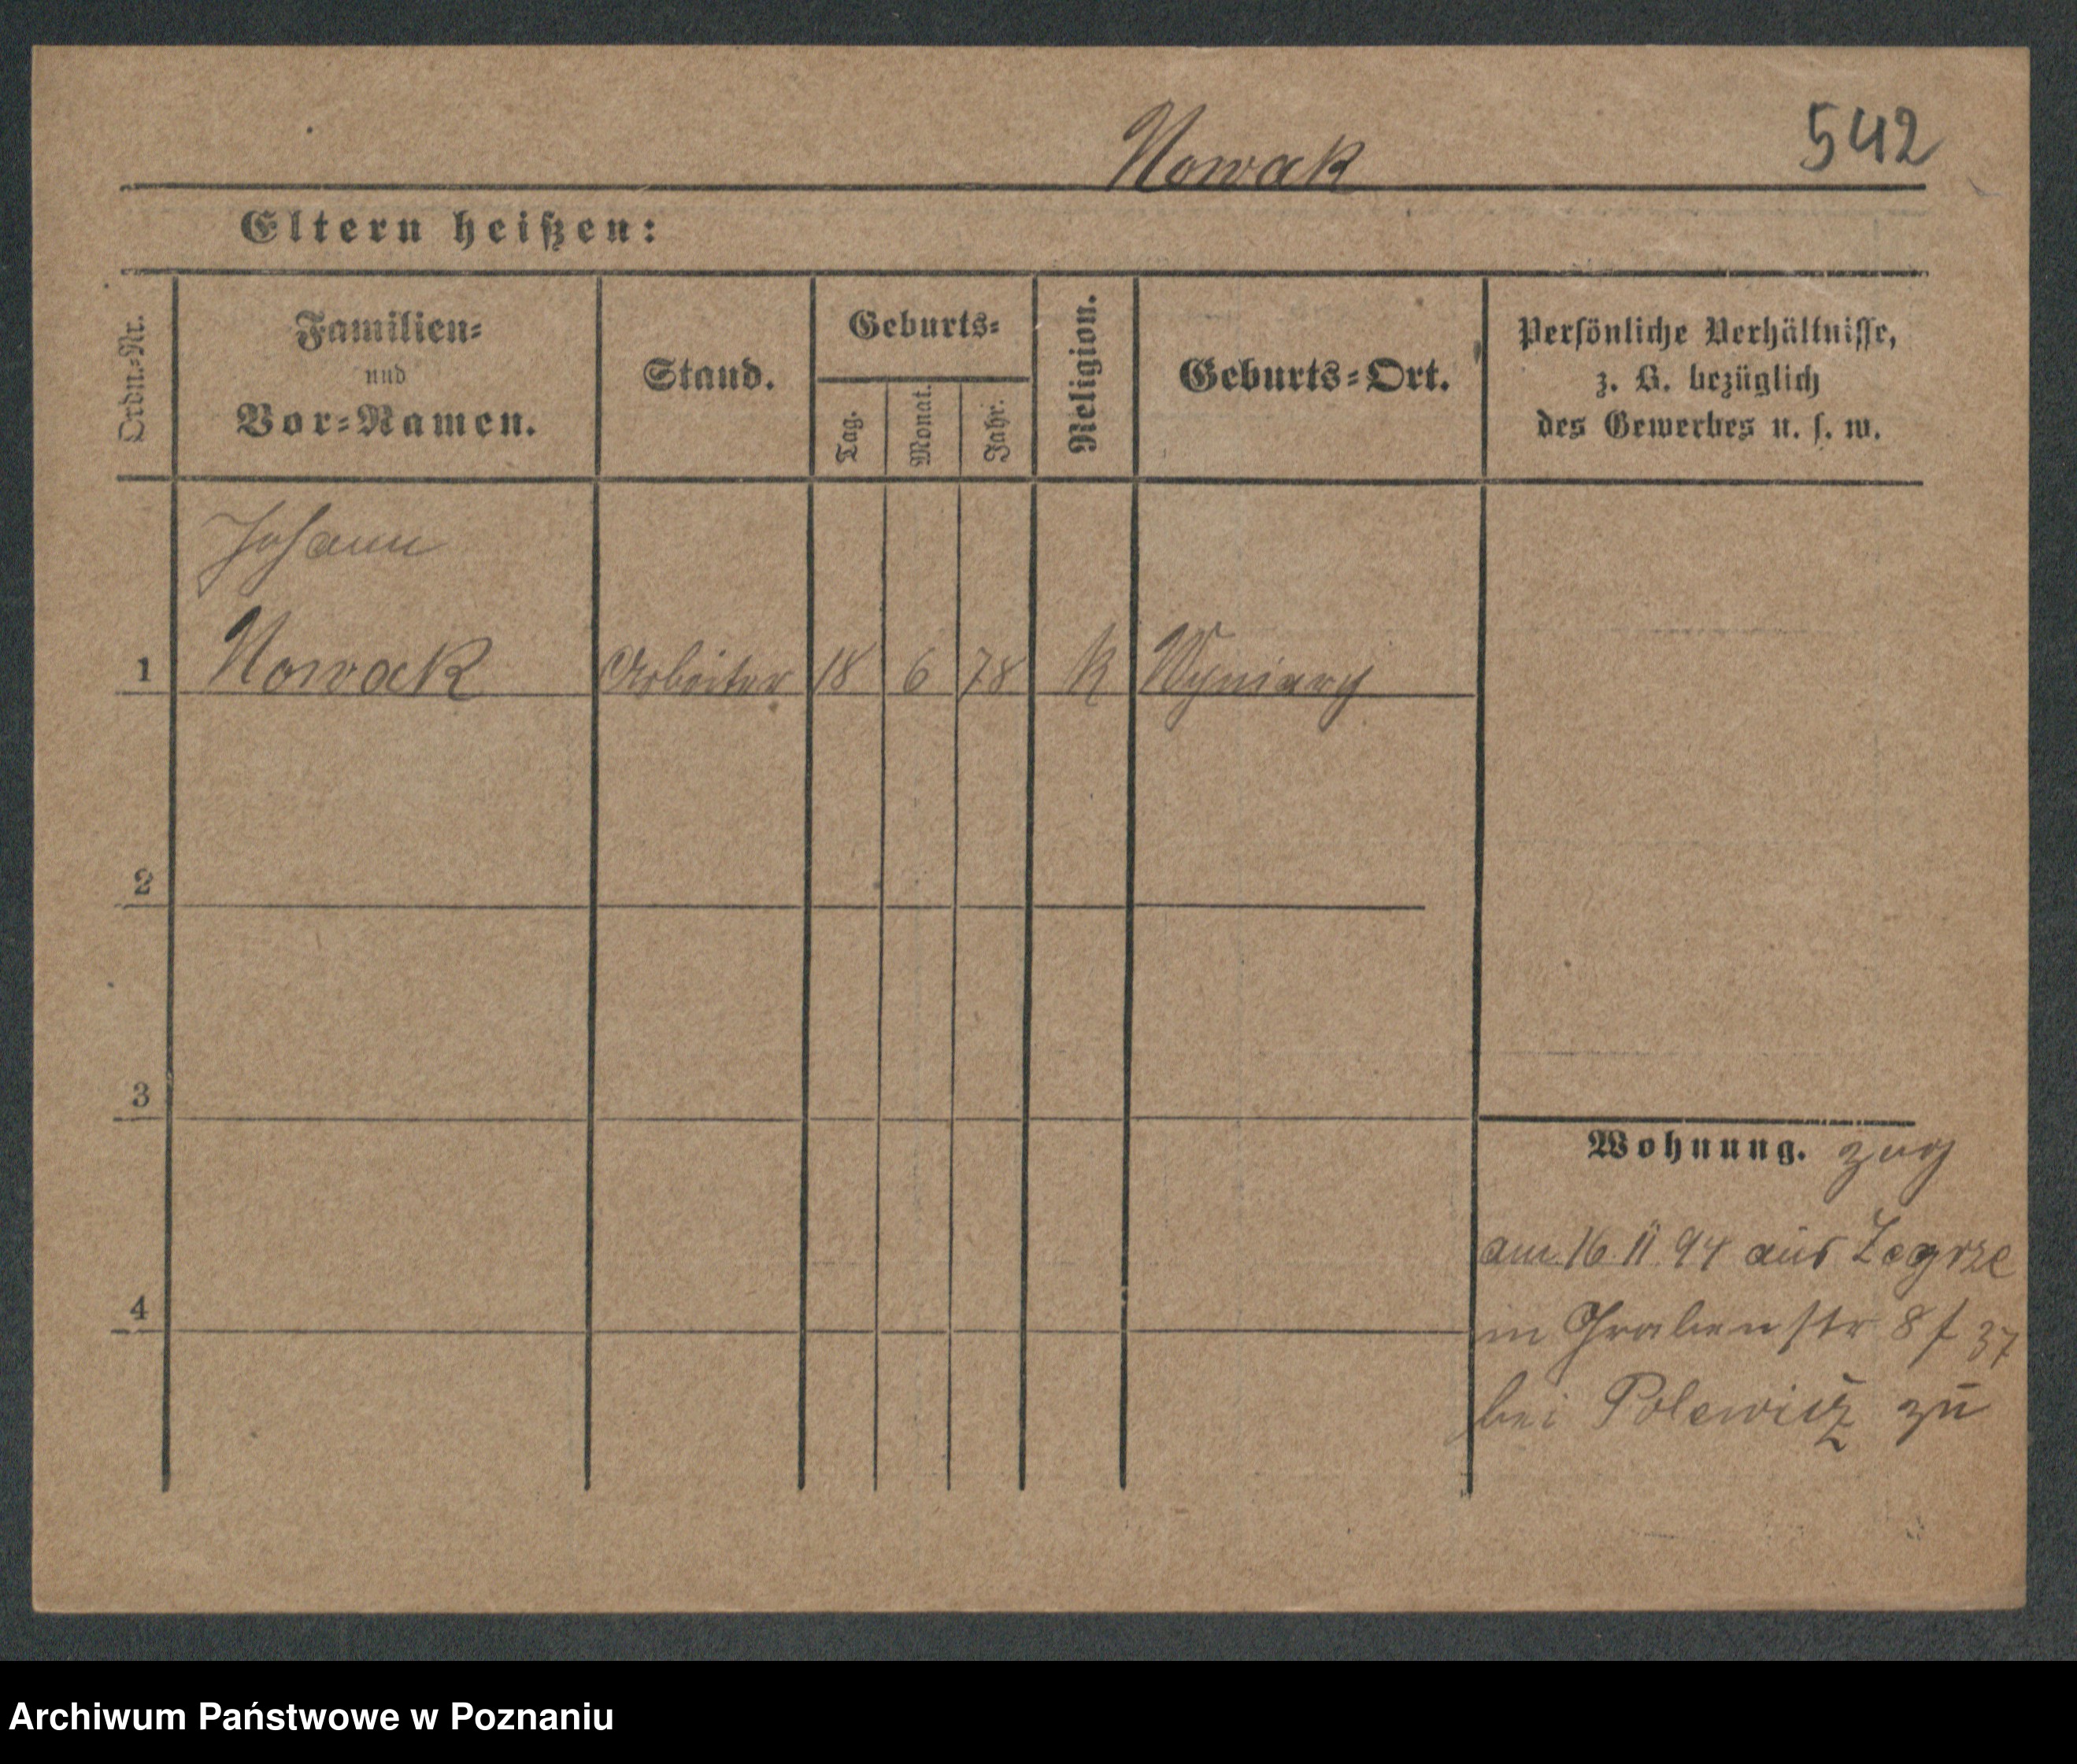 542
Nowak
Eltern heißen:
Ordn.-Nr.
Familien-
und
Vor-Namen.
Stand.
Geburts-
Tag.
Monat.
Jahr.
Religion.
Geburts-Ort.
Persönliche Verhältnisse,
z. B. bezüglich
des Gewerbes u. s. w.
Johann
1 Nowak Arbeiter 18 6 78 K Winiary
2
3
Wohnung. zug
am 16 11 94 aus Zegrze
4
in Grabenstr 8 f 37
bei Polewicz zu
Archiwum Państwowe w Poznaniu